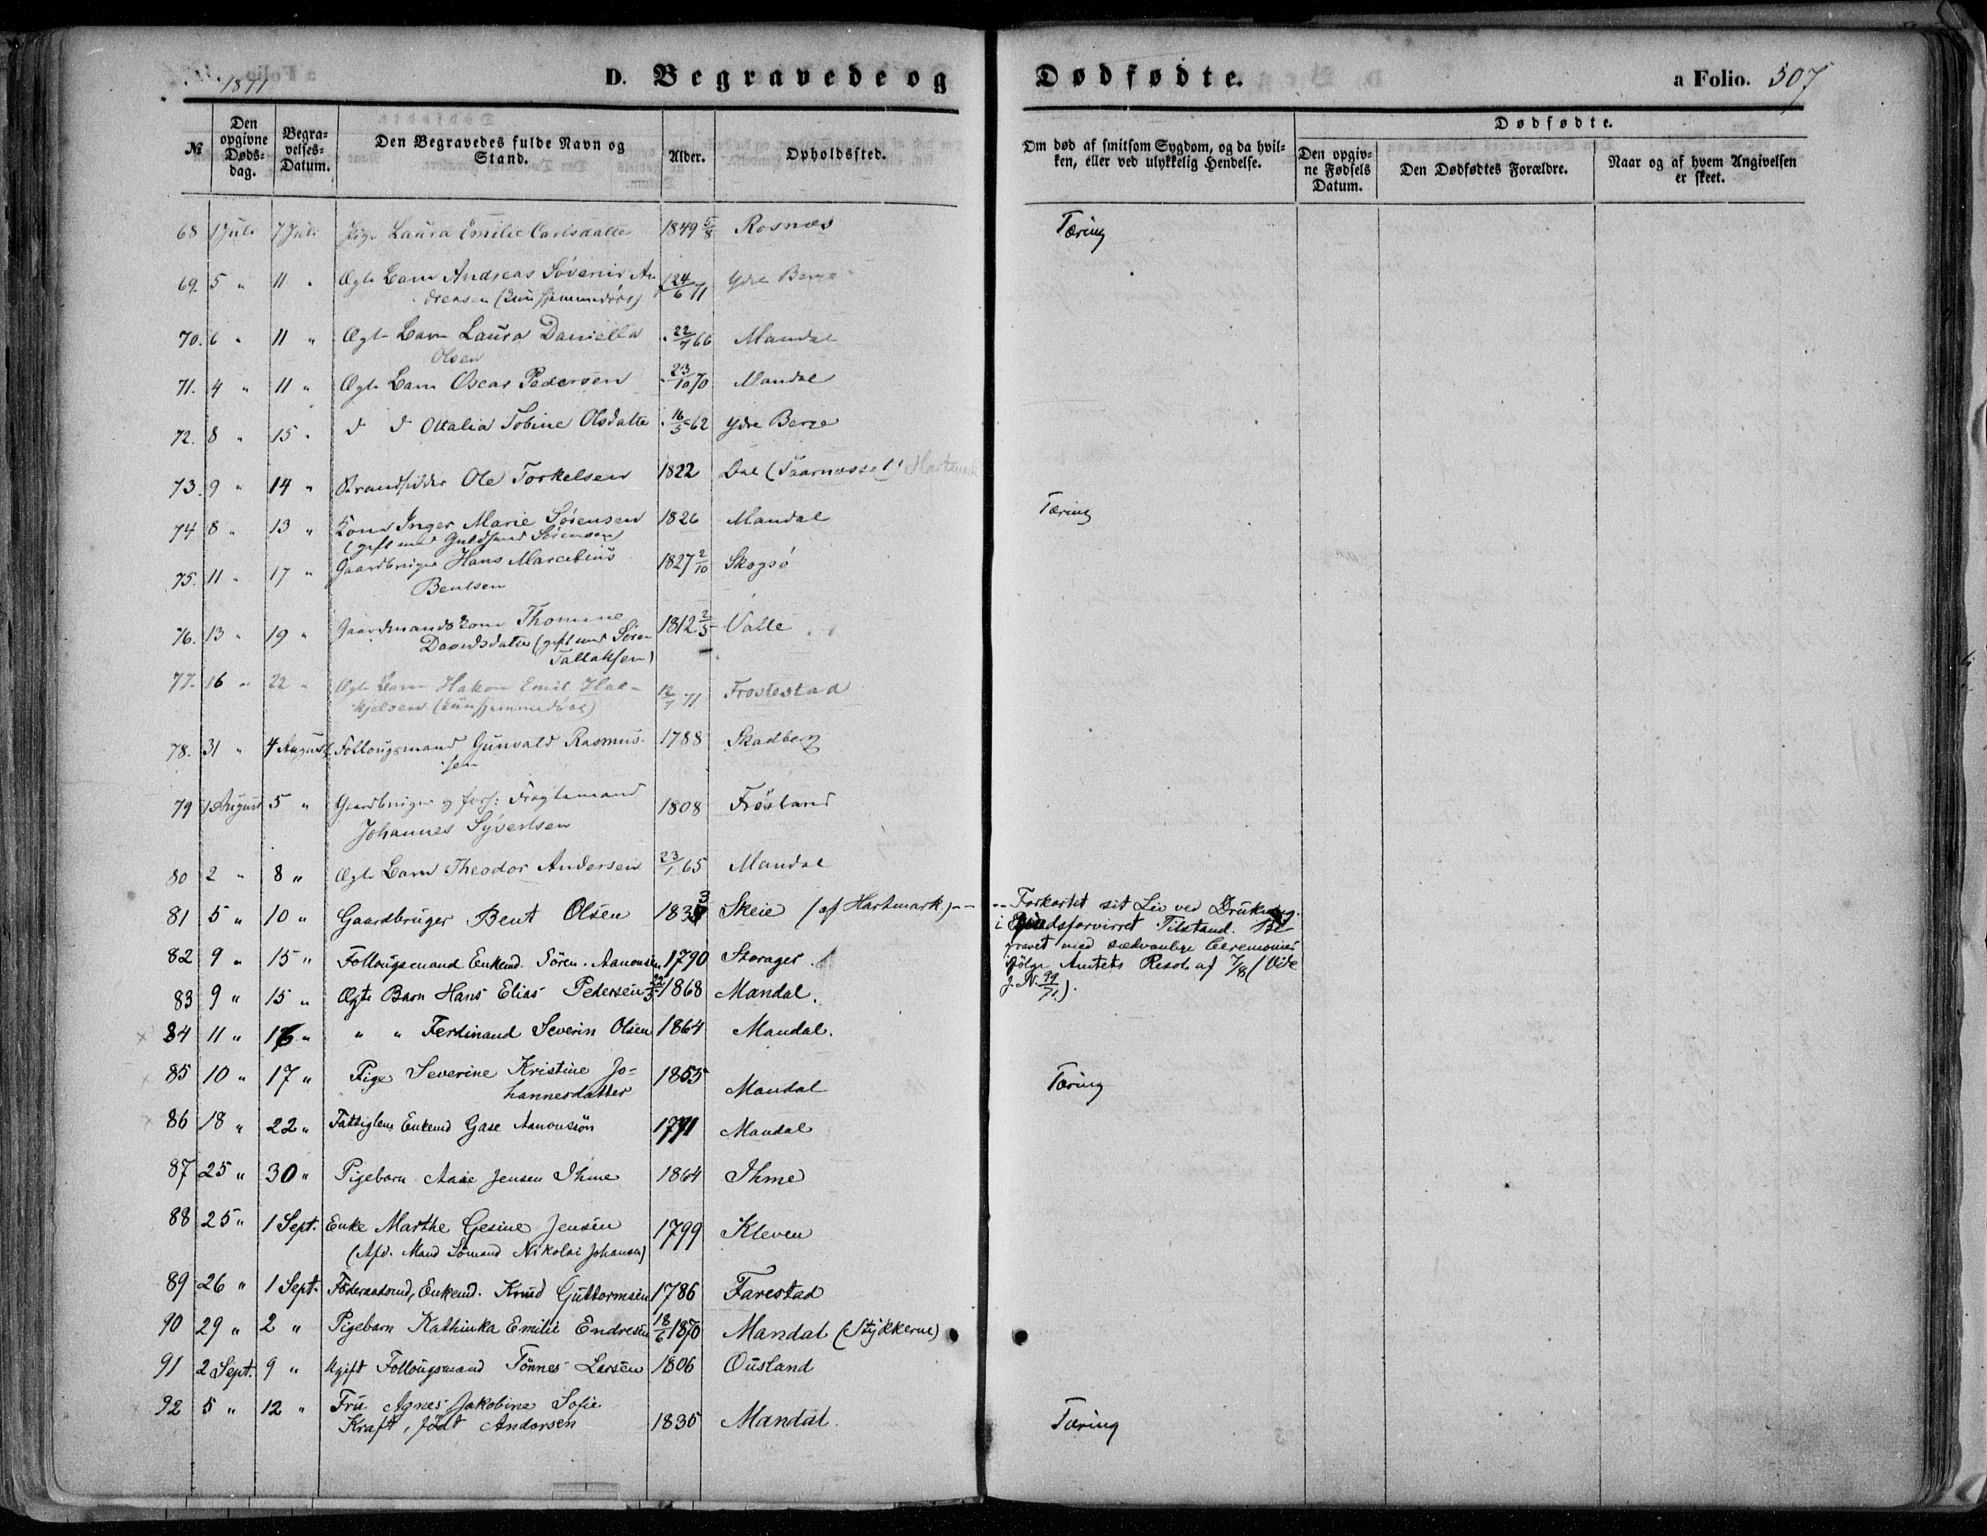 1871
D. Begravede og Dødfødte.
a Folio. 307
№
Den opgivne Døds-dag.
Begra-velses-Datum.
Den Begravedes fulde Navn og Stand.
Alder.
Opholdssted.
Om død af smitsom Sygdom, og da hvil-ken, eller ved ulykkelig Hendelse.
Dødfødte.
Den opgiv-ne Fødsels Datum.
Den Dødfødtes Forældre.
Naar og af hvem Angivelsen er skeet.
68 1 Juli 7 Juli Pige Laura Emilie Carlsdatter 1849 5/8 Rosnæs Tæring
69. 5 " 11 " Ægte Barn Andreas Søvenir An
dreasen (kun hjemmedøbt) 24/6 71 Ydre Berge
70. 6 " 11 " Ægte Barn Laura Daniella
Olsen 22/7 66 Mandal
71. 4 " 11 " Ægte Barn Oscar Pedersen 23/10 70 Mandal
72. 8 " 15 " d d Ottalia Tobine Olsdatter 16/5 62 Ydre Berge
73. 9 " 14 " Strandsidder Ole Torkelsen 1822 Dal (Taarnæsset) Hartmark
74 8 " 13 " Kone Inger Marie Sørensen 1826 Mandal Tæring
(gift med Guldsmed Sørensen)
75. 11 " 17 " Gaardbruger Hans Marcelius
Bentsen 1827 2/10 Skogsø
76. 13 " 19 " Gaardmandskone Thomine
Davidsdatter (gift med Søren
Tallaksen) 1812 2/5 Valle
77. 16 " 22 " Ægte Barn Hakon Emil Hal-
kjelsen (kun hjemmedøbt) 12/7 71 Frostestad
78. 31 " 4 August Follougsmand Gunvald Rasmus-
sen 1788 Skadberg
79 1 August 5 " Gaardbruger og forh: Fragtemand
Johannes Syvertsen 1808 Frøsland
80 2 " 8 " Ægte Barn Theodor Andersen 23/1 65 Mandal
81 5 " 10 " Gaardbruger Bent Olsen 1833 Skeie (af Hartmark) -- -- Forkortet sit Liv ved Drukning
i sindsforvirret Tilstand. Be-
gravet med sædvanlige Ceremonier
ifølge Amtets Resol. af 7/8 (Vide
J. N. 99/71).
82 9 " 15 " Follougsmand Enkemd. Sören Aanonsen 1790 Storager
83 9 " 15 " Ægte Barn Hans Elias Pedersen 29/5 1868 Mandal.
84 11 " 16 " " " Ferdinand Severin Olsen 1864 Mandal.
85 10 " 17 " Pige Severine Kristine Jo-
hannesdatter 1855 Mandal Tæring
86 18 " 22 " Fattiglem Enkemd Gase Aanonsön 1791 Mandal
87 25 " 30 " Pigebarn Aase Jensen Ihme 1864 Ihme
88 25 " 1 Sept. Enke Marthe Gesine Jensen
(Afd. Mand Sømand Nikolai Johansen) 1799 Kleven
89 26 " 1 Sept. Föderaadsmd, Enkemd. Knud Guttormsen 1786 Farestad
90 29 " 2 " Pigebarn Kathinka Emilie Endresen 18/6 1870 Mandal (Stykkerne)
91 2 Sept. 9 " Ugift Follougsmand Tönnes Larsen 1806 Ousland
92 5 " 12 " Fru Agnes Jakobine Sofie
Kraft, född Andorsen 1835 Mandal. Tæring